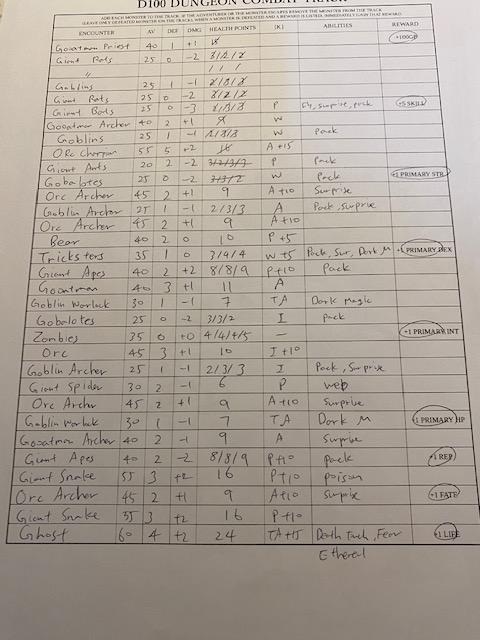 D100 DUNGEON COMBAT TRACK
ADD EACH MONSTER TO THE TRACK. IF THE ADVENTURER OR THE MONSTER ESCAPES REMOVE THE MONSTER FROM THE TRACK
(LEAVE ONLY DEFEATED MONSTER ON THE TRACK). WHEN A MONSTER IS DEFEATED AND A REWARD IS LISTED, IMMEDIATELY GAIN THAT REWARD.
ENCOUNTER AV DEF DMG HEALTH POINTS [K] ABILITIES REWARD
Goatman Priest 40 1 +1 +100GP
Giant Rats 25 0 -2
"
Goblins 25 1 -1
Giant Rats 25 0 -2
Giant Bats 25 0 -3 P Fly, surprise, pack +5 SKILL
Goatman Archer 40 2 +1 9 W
Goblins 25 1 -1 W Pack
Orc Champion 55 5 +2 A+15
Giant Ants 20 2 -2 3/2/3/2 P Pack
Gobalotes 25 0 -2 3/3/2 W Pack +1 PRIMARY STR
Orc Archer 45 2 +1 9 A+10 Surprise
Goblin Archer 25 1 -1 2/3/3 A Pack, Surprise
Orc Archer 45 2 +1 9 A+10
Bear 40 2 0 10 P+5
Tricksters 35 1 0 3/4/4 W+5 Pack, Sur, Dark M +1 PRIMARY DEX
Giant Apes 40 2 +2 8/8/9 P+10 Pack
Goatman 40 3 +1 11 A
Goblin Warlock 30 1 -1 7 TA Dark Magic
Gobalotes 25 0 -2 3/3/2 I pack
Zombies 35 0 +0 4/4/4/5 — +1 PRIMARY INT
Orc 45 3 +1 10 I+10
Goblin Archer 25 1 -1 2/3/3 I Pack, Surprise
Giant Spider 30 2 -1 6 P web
Orc Archer 45 2 +1 9 A+10 Surprise
Goblin Warlock 30 1 -1 7 TA Dark M +1 PRIMARY HP
Goatman Archer 40 2 -1 9 A Surprise
Giant Apes 40 2 -2 8/8/9 P+10 pack +1 REP
Giant Snake 55 3 +2 16 P+10 poison
Orc Archer 45 2 +1 9 A+10 Surprise +1 FATE
Giant Snake 55 3 +2 16 P+10
Ghost 60 4 +2 24 TA+15 Death Touch, Fear +1 LIFE
Ethereal